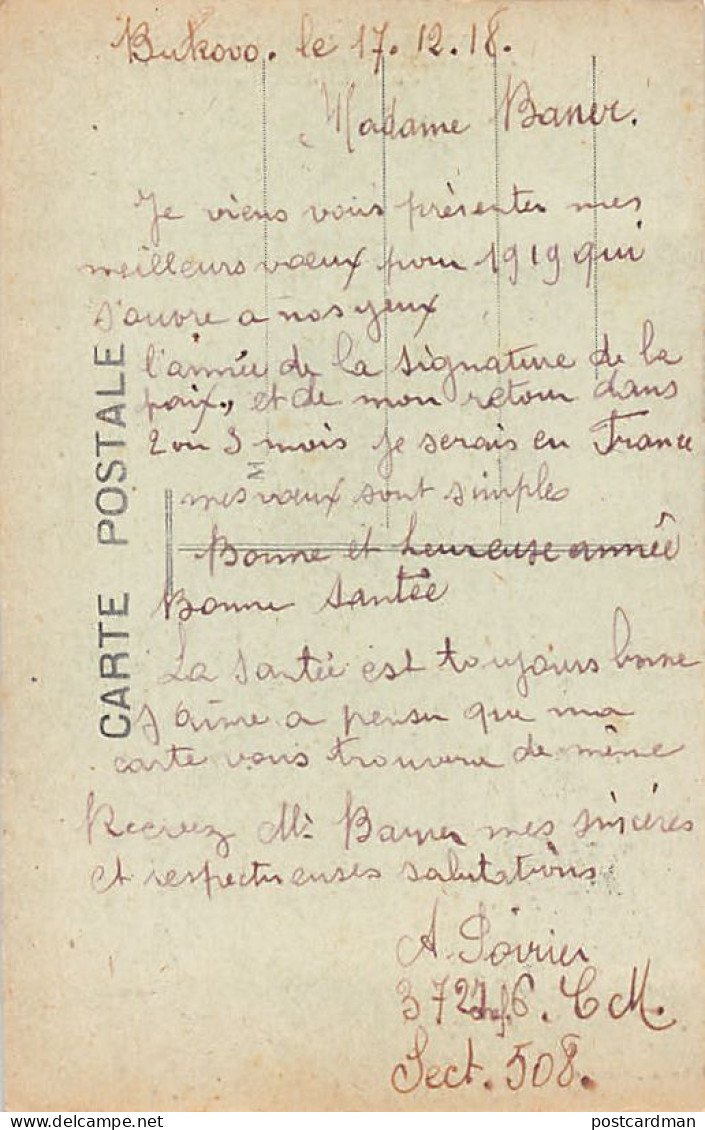 Bukovo. le 17.12.18.
Madame Baner.
Je viens vous présenter mes
meilleurs vœux pour 1919 qui
s'ouvre a nos yeux
l'année de la signature de la
paix, et de mon retour dans
2 ou 3 mois je serais en France
mes vœux sont simples
Bonne et heureuse année
Bonne Santée
La Santée est toujours bonne
J'aime a penser que ma
carte vous trouvera de même
Recevez Mr Bayer mes sincéres
et respectueuses salutations
A. Poirier
372 6. C M.
Sect. 508.
CARTE POSTALE
M
postcardman